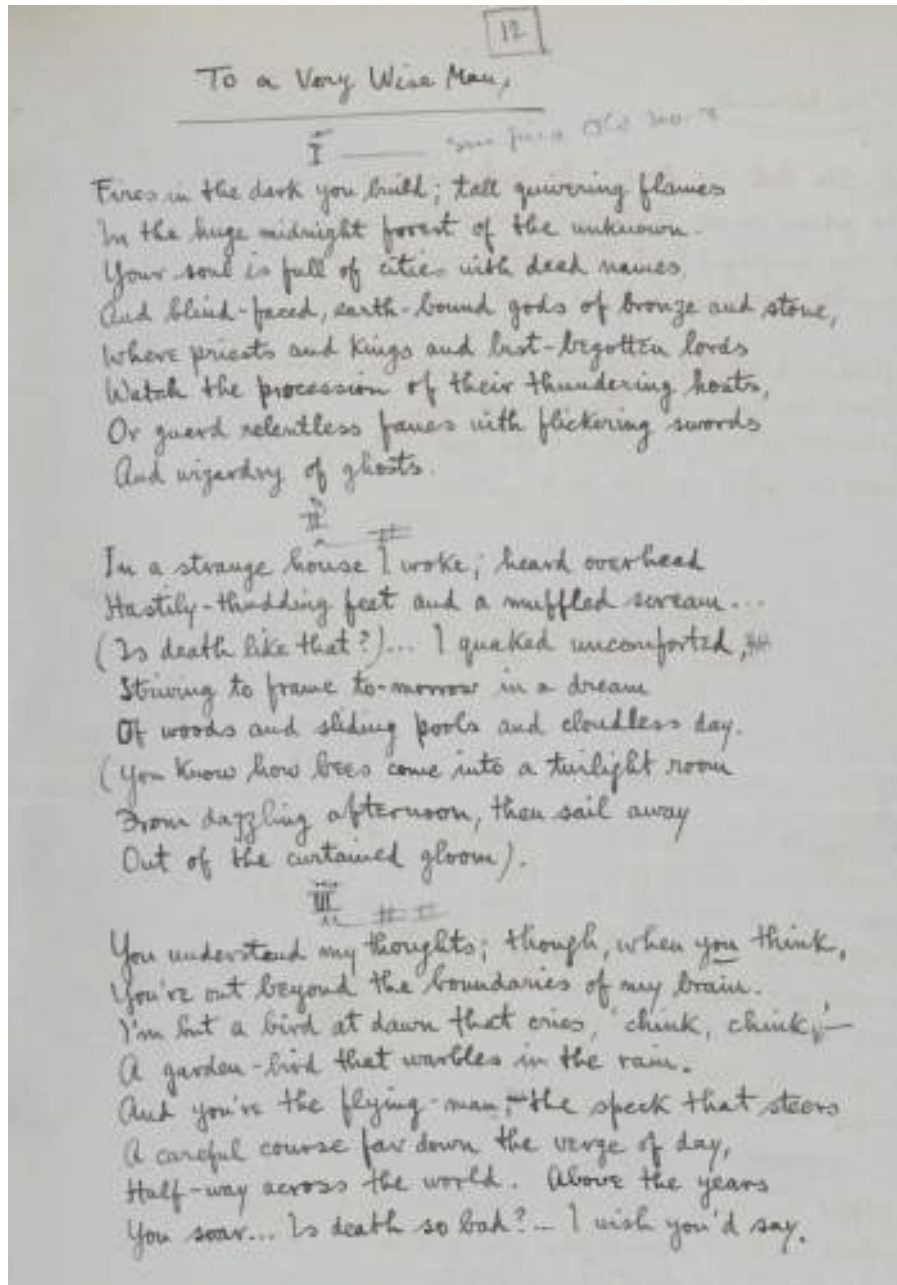 12
To a Very Wise Man,
I
Fires in the dark you build; tall quivering flames
In the huge midnight forest of the unknown.
Your soul is full of cities with dead names,
And blind-faced, earth-bound gods of bronze and stone,
Where priests and kings and lust-begotten lords
Watch the procession of their thundering hosts,
Or guard relentless fanes with flickering swords
And wizardry of ghosts.
II
In a strange house I woke; heard overhead
Hastily-thudding feet and a muffled scream...
(Is death like that?)... I quaked uncomforted,
Striving to frame to-morrow in a dream
Of woods and sliding pools and cloudless day.
(You know how bees come into a twilight room
From dazzling afternoon, then sail away
Out of the curtained gloom).
III
You understand my thoughts; though, when you think,
You're out beyond the boundaries of my brain.
I'm but a bird at dawn that cries, 'chink, chink,'—
A garden-bird that warbles in the rain.
And you're the flying-man, the speck that steers
A careful course far down the verge of day,
Half-way across the world. Above the years
You soar... Is death so bad?... I wish you'd say.